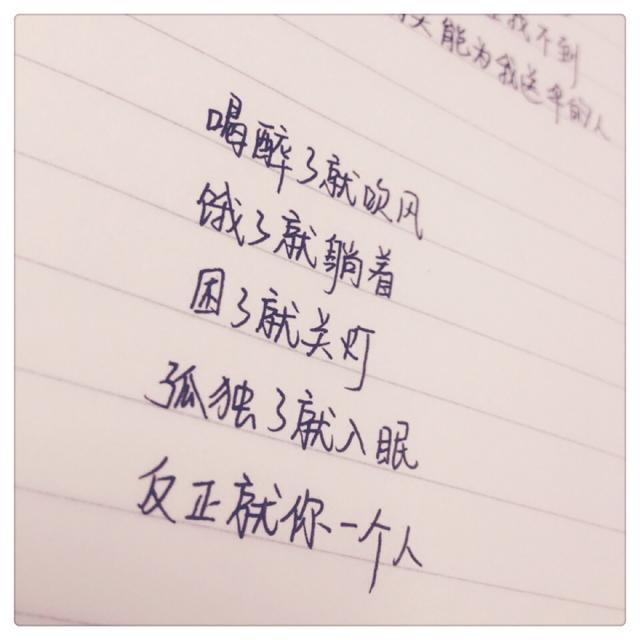 找不到
能为我送伞的人
喝醉了就吹风
饿了就躺着
困了就关灯
孤独了就入眠
反正就你一个人